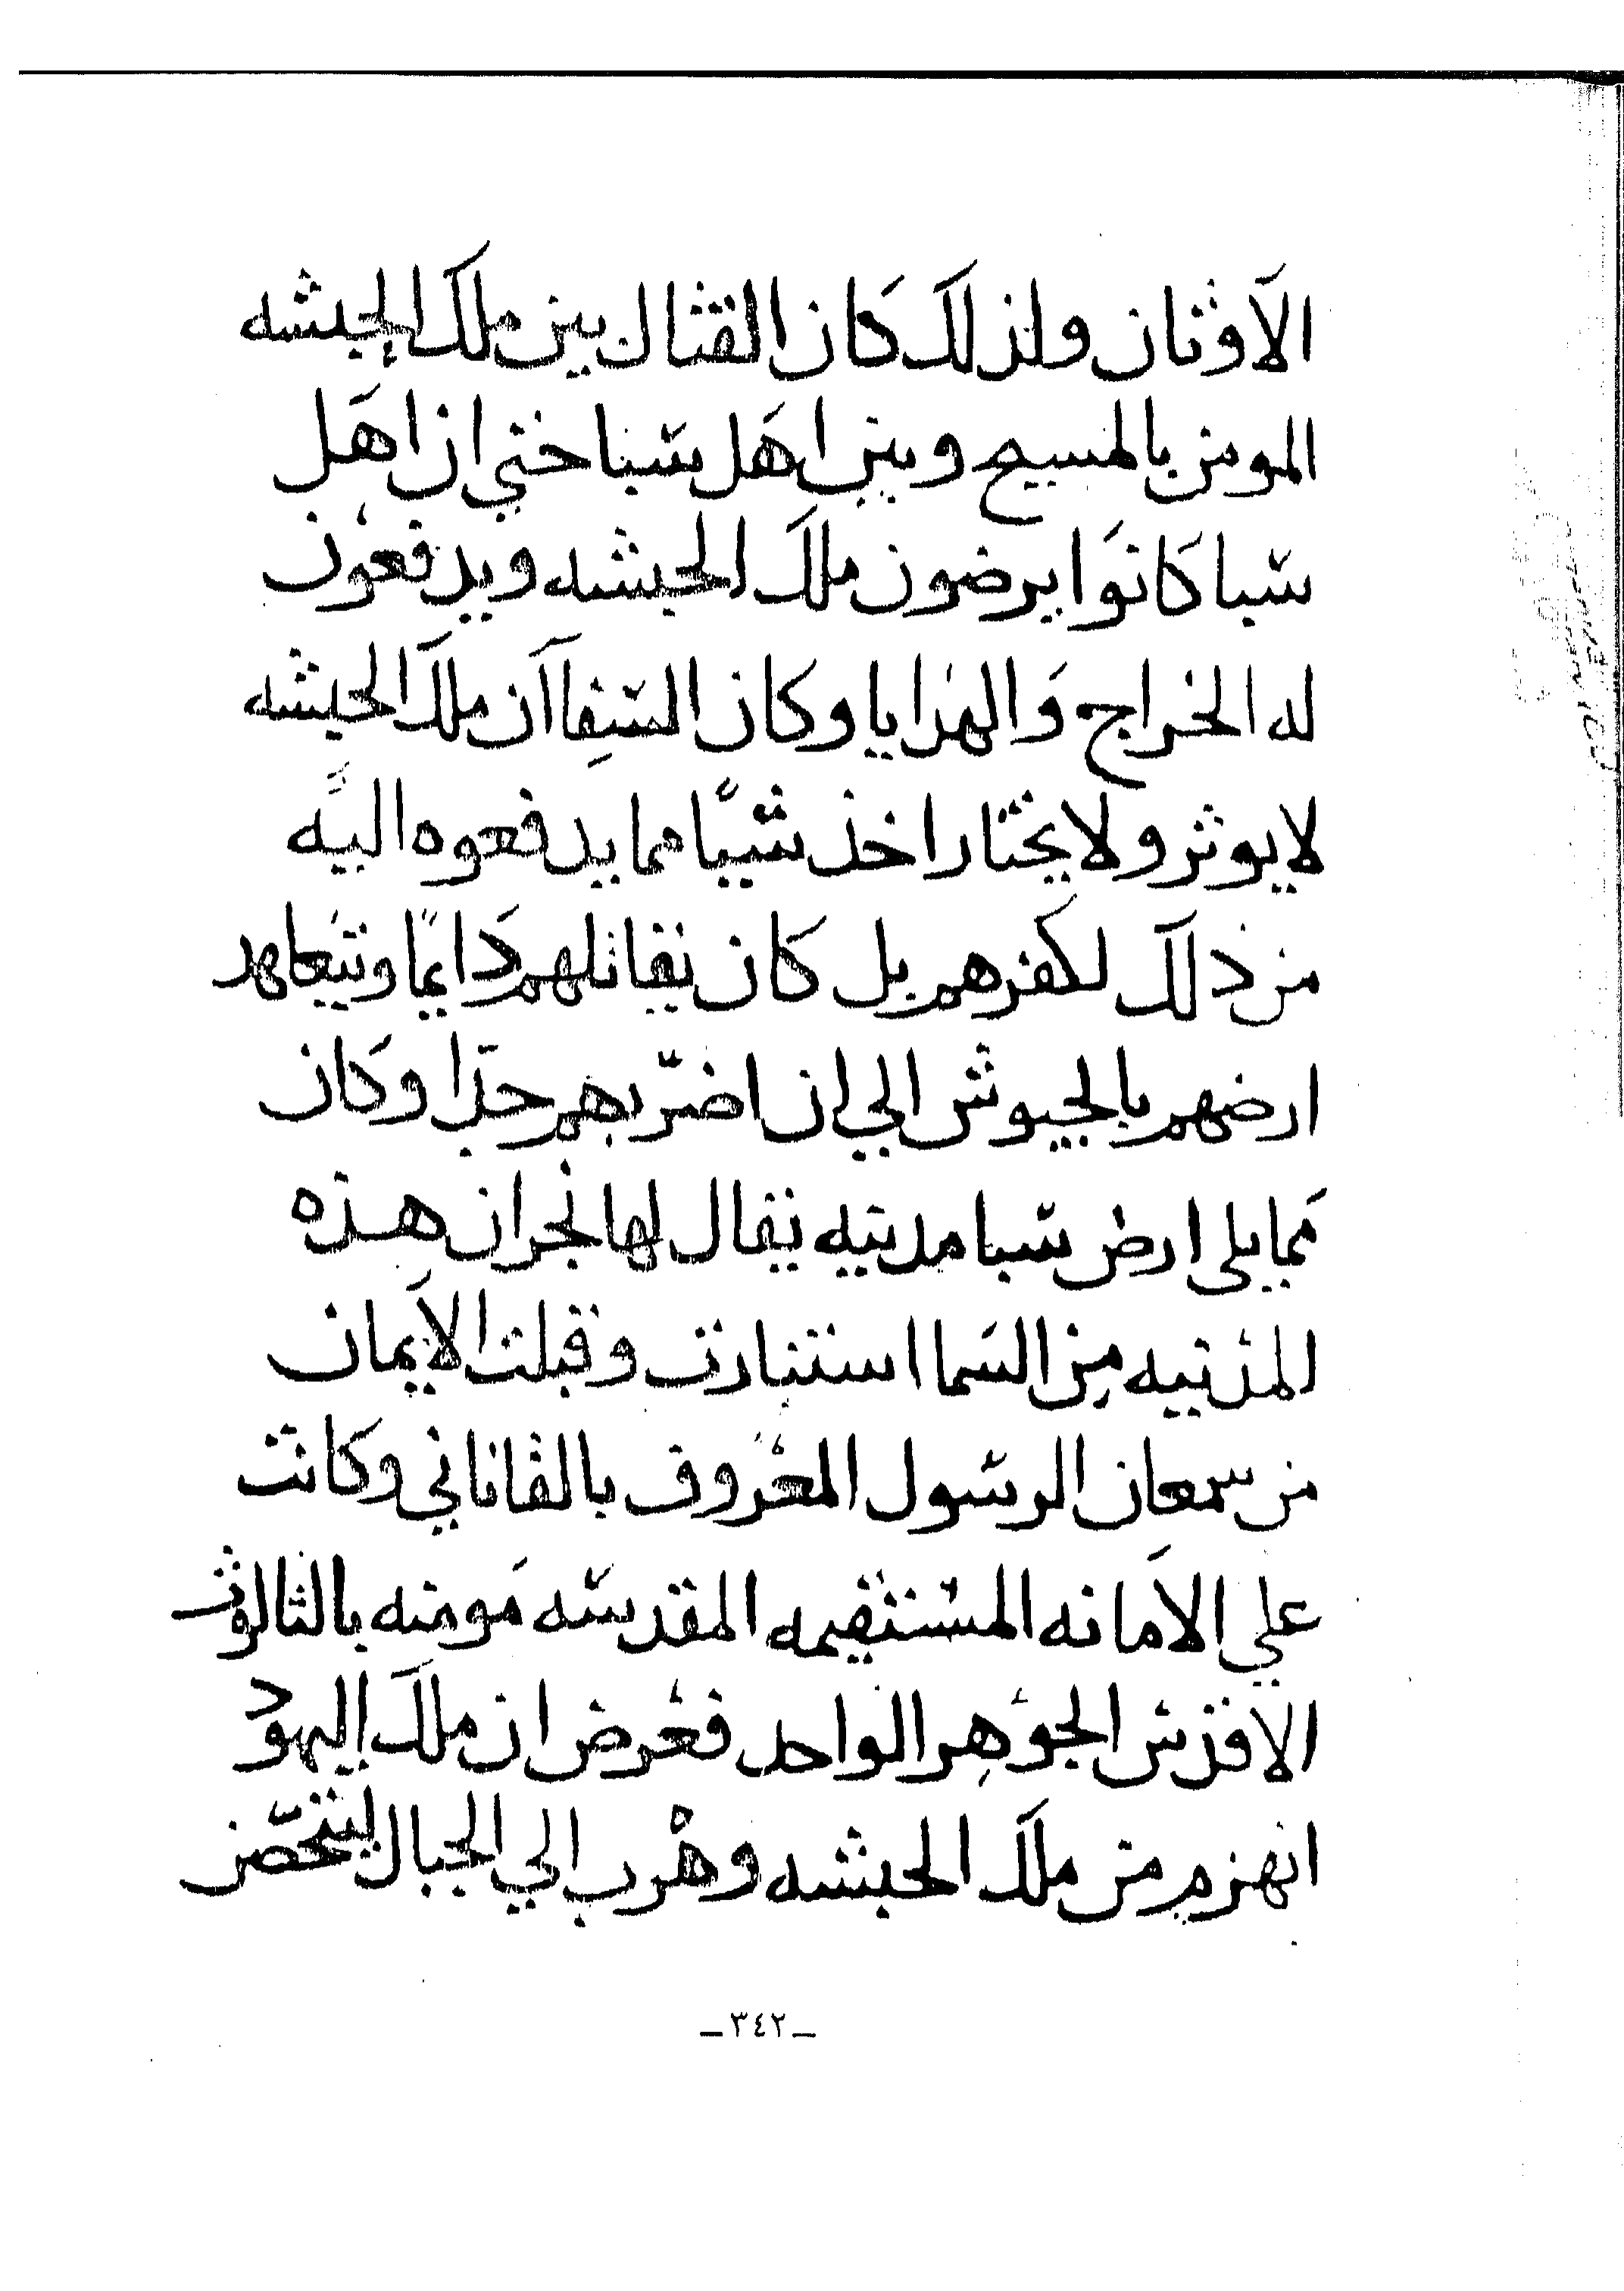 الاوثان ولذلك كان القتال بين ملك الحبشه
المومن بالمسيح وبين اهل سبا حتي ان اهل
سبا كانوا يرضون ملك الحبشه ويدفعون
له الخراج والهدايا وكان السفاان ملك الحبشه
لا يوثر ولا يختار اخذ شيبًا مما يدفعوه اليه
من ذلك لكفرهم بل كان يقاتلهم دايمًا ويتعاهد
ارضهم بالجيوش الي ان اضرّ بهم جدا وكان
مما يلي ارض سبا مدينه يقال لها نجران هذه
المدينه من السما استنارت وقبلت الايمان
من سمعان الرسول المعروف بالقاناني وكانت
علي الامانه المستقيمه المقدسه مومنه بالثالوث
الاقدس الجوهر الواحد فعرض ان ملك اليهود
انهزم من ملك الحبشه وهرب الي الجبال ليتحصّن
_٣٤٢_